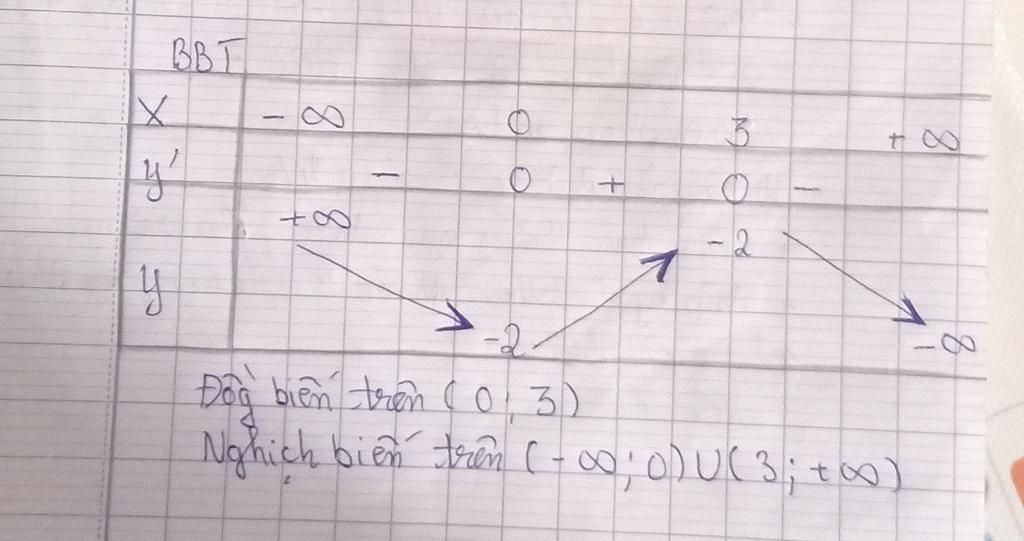 BBT
X - ∞ 0 3 + ∞
y' - 0 + 0 -
+∞ -2
y -2 - ∞
Đồg biến trên (0; 3)
Nghịch biến trên (-∞; 0) U (3; +∞)